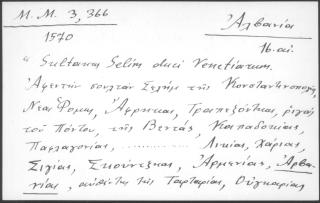 M. M. 3, 366
Ἀλβανία
1570
16. αἰ.
" Sultanus Selim duci Venetiarum.
Ἀφέντης σουλτὰν Σελὴμ τῆς Κωνσταντινουπό
Νέας Ρώμης, Ἀφρικῆς, Τραπεζόντας, ῥιγάς
τοῦ Πόντου, τῆς Βεντας, Καπαδοκίας,
Παφλαγονίας, .......... Λικίας, Χάριας,
Σιγίας, Σκούντζιας, Ἀρμενίας, Ἀρβα-
νίας, αὐθέντης τῆς Ταρταρίας, Οὐγκαρίας